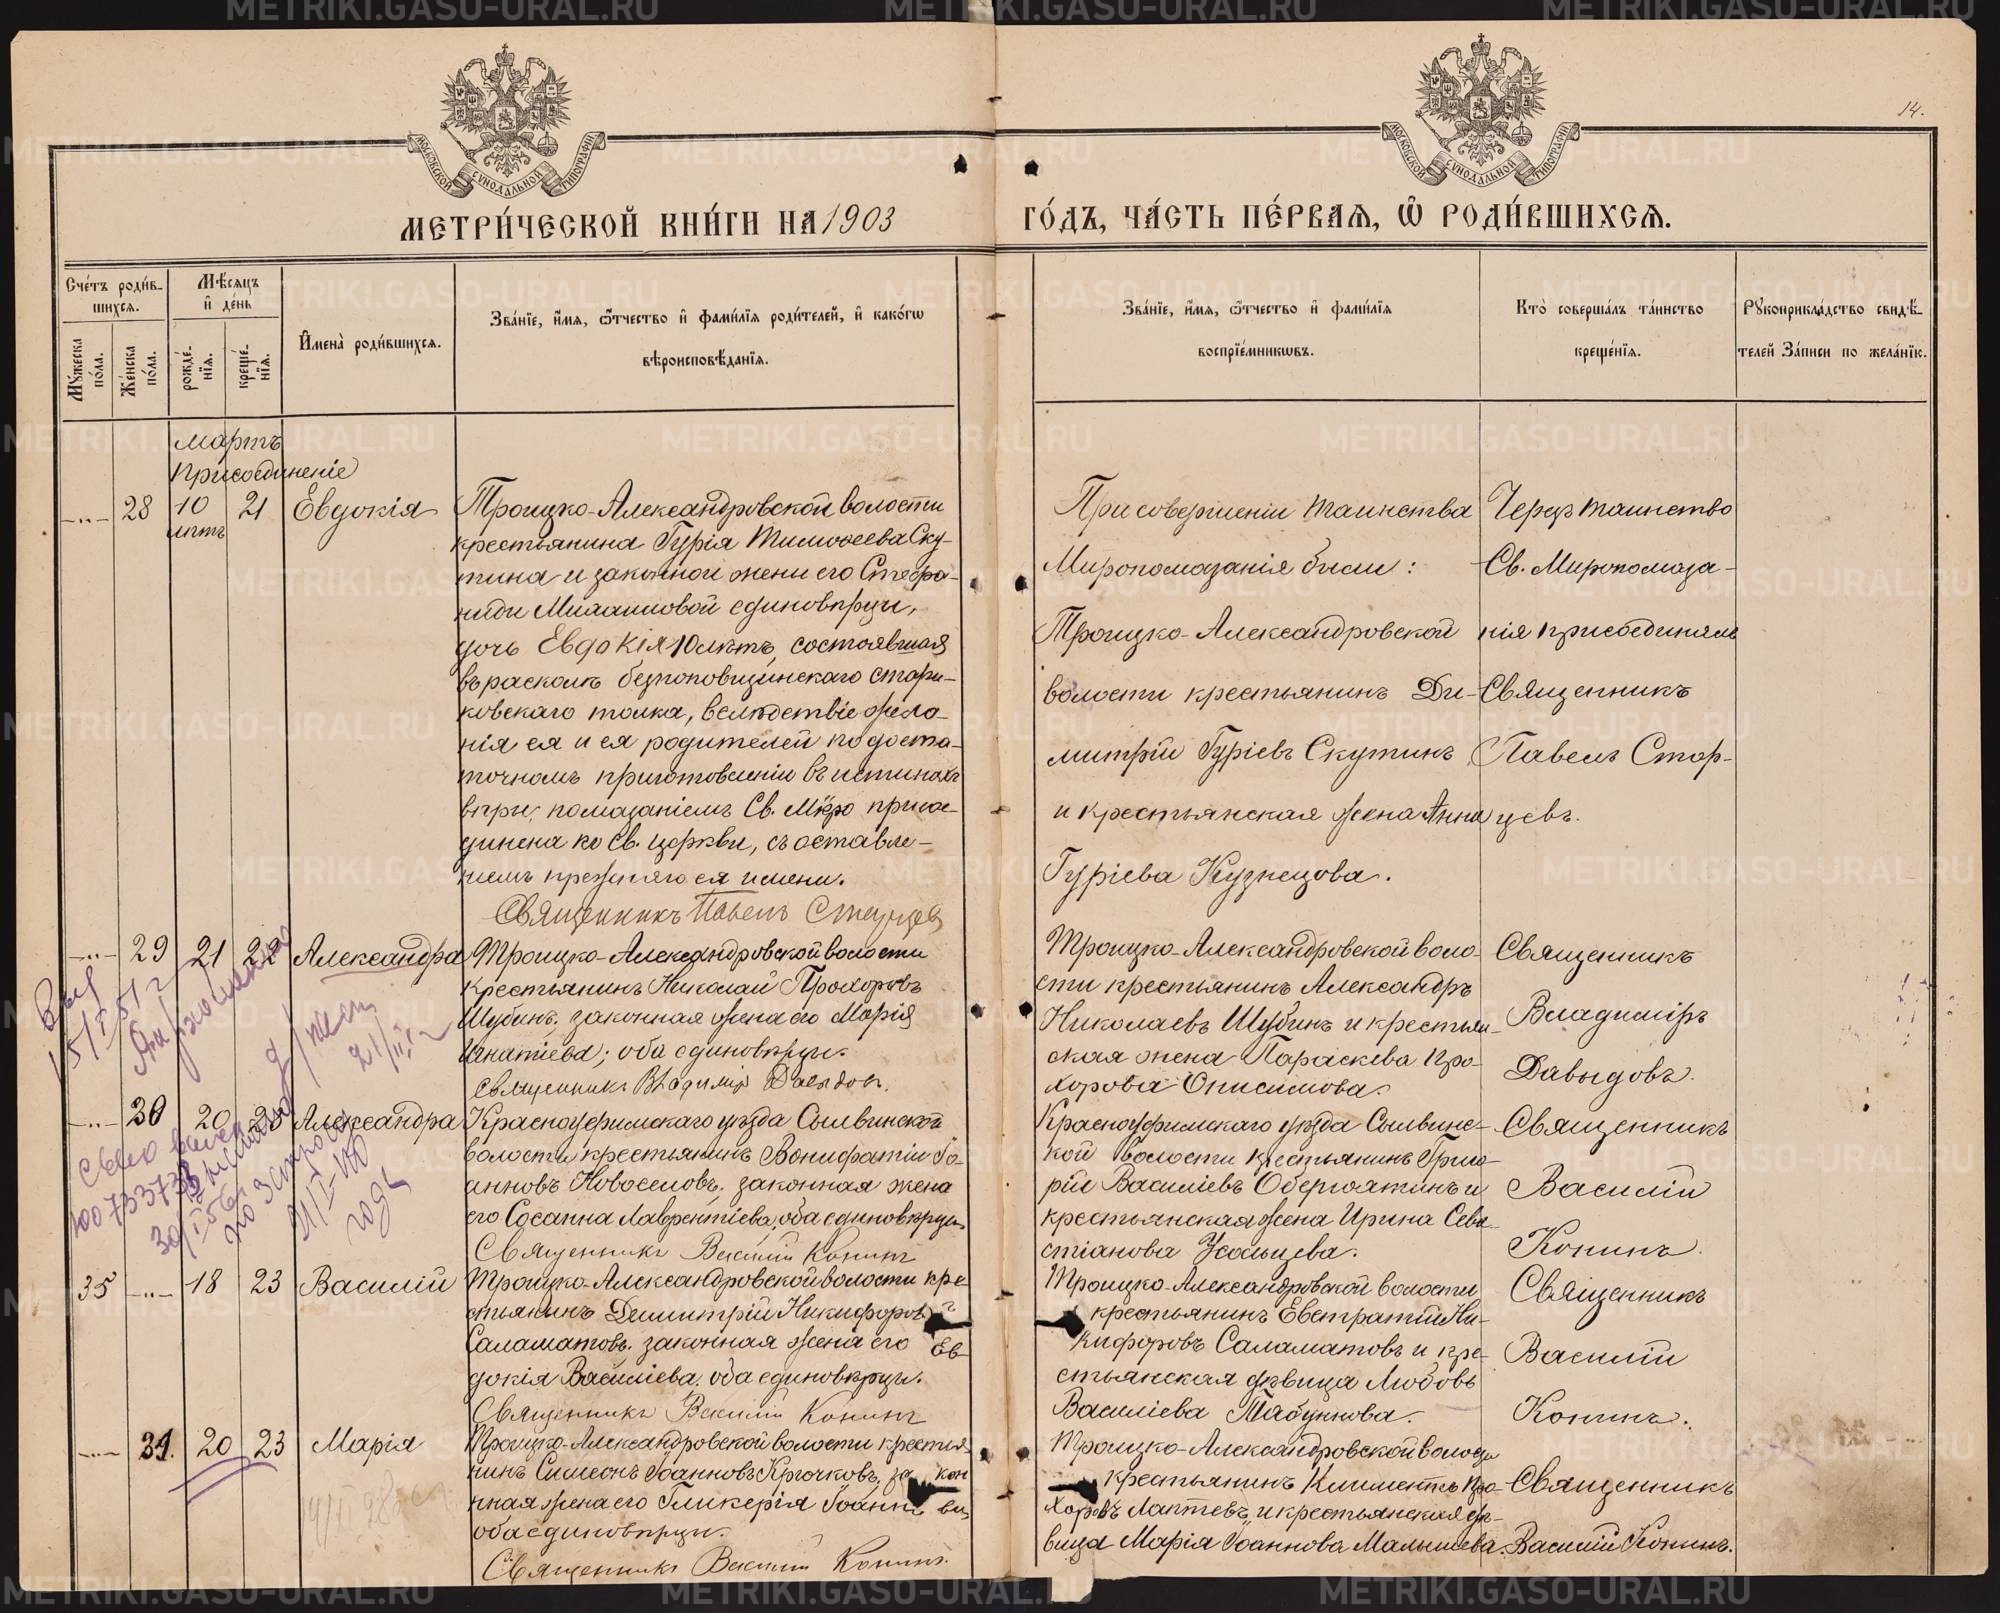 14.
МОСКОВСКОЙ СѴНОДАЛЬНОЙ ТИПОГРАФІИ
МОСКОВСКОЙ СѴНОДАЛЬНОЙ ТИПОГРАФІИ
МЕТРИ́ЧЕСКОЙ КНИ́ГИ НА 1903
ГО́ДЪ, ЧА́СТЬ ПЕ́РВАѦ, Ѽ РОДИ́ВШИХСѦ.
Сче́тъ роди́в-
шихсѧ.
Мꙋ́жеска по́ла.
Же́нска по́ла.
Мѣ́сѧцъ
и҆ де́нь
рожде́-
нїѧ.
креще́-
нїѧ.
И҆мена̀ роди́вшихсѧ.
Зва́нїе, и҆́мѧ, ѻ҆́тчество и҆ фами́лїѧ роди́телей, и҆ како́гѡ
вѣроисповѣ́данїѧ.
Зва́нїе, и҆́мѧ, ѻ҆́тчество и҆ фами́лїѧ
воспрїе́мникѡвъ.
Кто̀ соверша́лъ та́инство
креще́нїѧ.
Рꙋкоприкла́дство свидѣ́-
телей за́писи по жела́нїю.
Мартъ
Присоединеніе
28 10 лѣтъ 21 Евдокія
Троицко-Александровской волости
крестьянина Гурія Тимоѳеева Ску-
тина и законной жены его Стефа-
ниды Михаиловой единовѣрцы,
дочь Евдокія 10 лѣтъ, состоявшая
въ расколѣ безпоповщинскаго стари-
ковскаго толка, вслѣдствіе жела-
нія ея и ея родителей по доста-
точномъ приготовленіи въ истинахъ
вѣры, помазаніемъ Св. Мѵро присое-
динена ко Св. церкви, съ оставле-
ніемъ прежняго ея имени.
Священникъ Павелъ Старцев
При совершеніи таинства
Миропомазанія были:
Троицко-Александровской
волости крестьянинъ Ди-
митрій Гуріевъ Скутинъ
и крестьянская жена Анна
Гуріева Кузнецова.
Черезъ таинство
Св. Миропомаза-
нія присоединялъ
Священникъ
Павелъ Стар-
цевъ.
29 21 22 Александра
Троицко-Александровской волости
крестьянинъ Николай Прохоровъ
Шубинъ, законная жена его Марія
Игнатіева; оба единовѣрцы.
Священникъ Владиміръ Давыдовъ.
Троицко-Александровской воло-
сти крестьянинъ Александръ
Николаевъ Шубинъ и крестьян-
ская жена Параскева Про-
хорова Онисимова.
Священникъ
Владиміръ
Давыдовъ.
30 20 23 Александра
Красноуфимскаго уѣзда Сылвинской
волости крестьянинъ Вонифатій Іо-
анновъ Новоселовъ, законная жена
его Сосанна Лаврентіева, оба единовѣрцы.
Священникъ Василій Конинъ
Красноуфимскаго уѣзда Сылвинс-
кой волости крестьянинъ Григо-
рій Василіевъ Оберюхтинъ и
крестьянская жена Ирина Сева-
стіанова Усольцева.
Священникъ
Василій
Конинъ.
35 18 23 Василій
Троицко-Александровской волости кре-
стьянинъ Димитрій Никифоровъ
Саламатовъ, законная жена его Ев-
докія Василіева, оба единовѣрцы.
Священникъ Василій Конинъ
Троицко-Александровской волости
крестьянинъ Евстратій Ни-
кифоровъ Саламатовъ и кре-
стьянская дѣвица Любовь
Василіева Табуннова.
Священникъ
Василій
Конинъ.
31. 20 23 Марія
Троицко-Александровской волости крестья-
нинъ Симеонъ Іоанновъ Крючковъ, закон
ная жена его Гликерія Іоаннова,
оба единовѣрцы.
Священникъ Василій Конинъ.
Троицко-Александровской волости
крестьянинъ Климентъ Про-
хоровъ Лаптевъ и крестьянская дѣ-
вица Марія Іоаннова Малышева.
Священникъ
Василій Конинъ.
METRIKI.GASO-URAL.RU